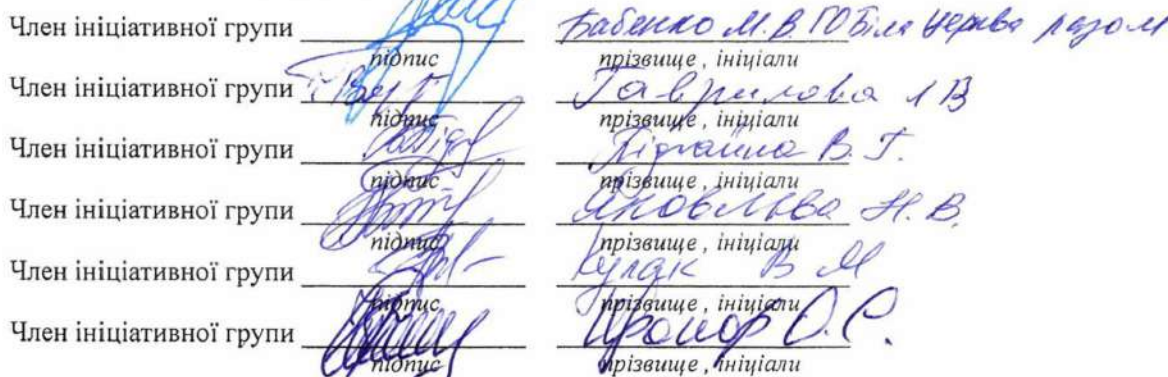 Член ініціативної групи Бабенко М.В. ГО Біла Церква разом
підпис прізвище , ініціали
Член ініціативної групи Гаврилова Л В
підпис прізвище , ініціали
Член ініціативної групи В. Г.
підпис прізвище , ініціали
Член ініціативної групи Яковлєва Н. В.
підпис прізвище , ініціали
Член ініціативної групи Кулак В М
підпис прізвище , ініціали
Член ініціативної групи О. С.
підпис прізвище , ініціали